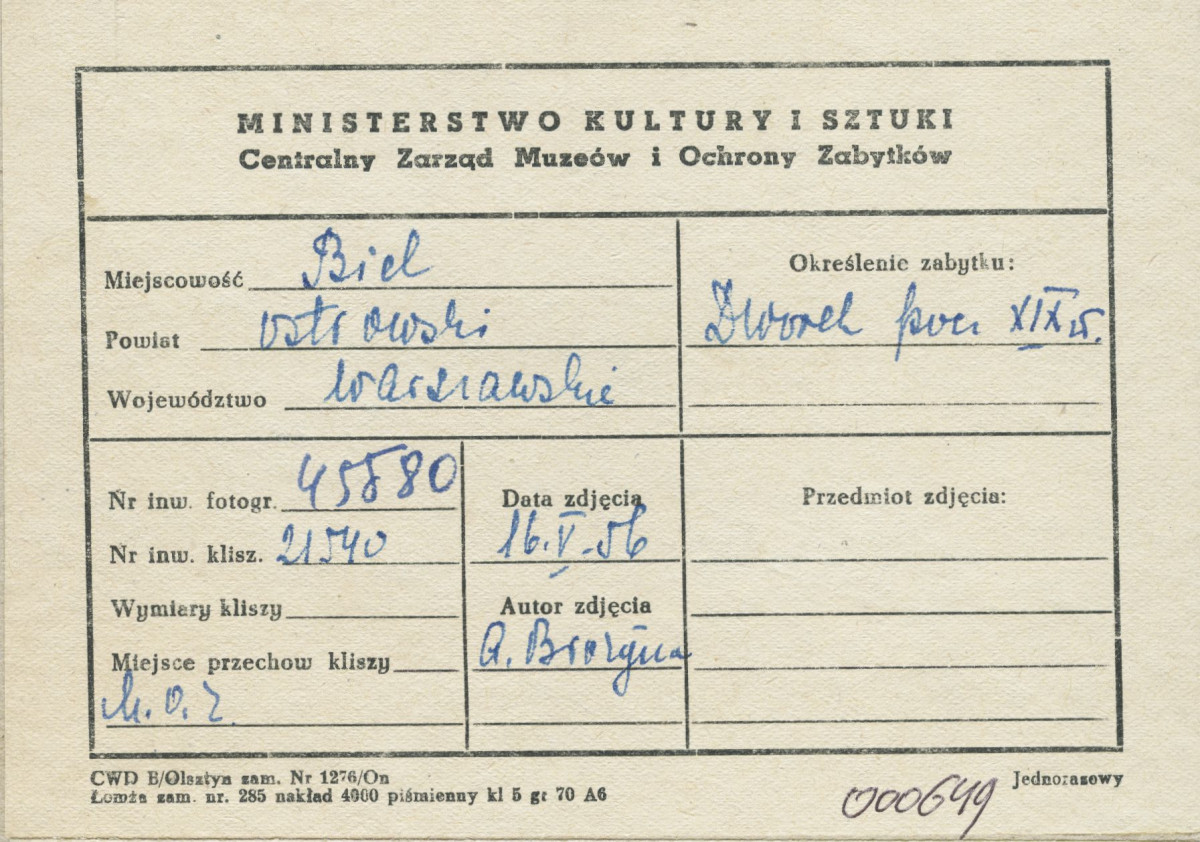 MINISTERSTWO KULTURY I SZTUKI
Centralny Zarząd Muzeów i Ochrony Zabytków
Miejscowość Biel
Powiat ostrowski
Województwo warszawskie
Określenie zabytku:
Dworek pocz XIX w.
Nr inw. fotogr. 45580
Nr inw. klisz. 21540
Wymiary kliszy
Miejsce przechow kliszy
M.O.Z.
Data zdjęcia
16.V.56
Autor zdjęcia
Przedmiot zdjęcia:
CWD B/Olsztyn zam. Nr 1276/On
Łomża zam. nr. 285 nakład 4000 piśmienny kl 5 gr 70 A6
Jednorazowy
000649